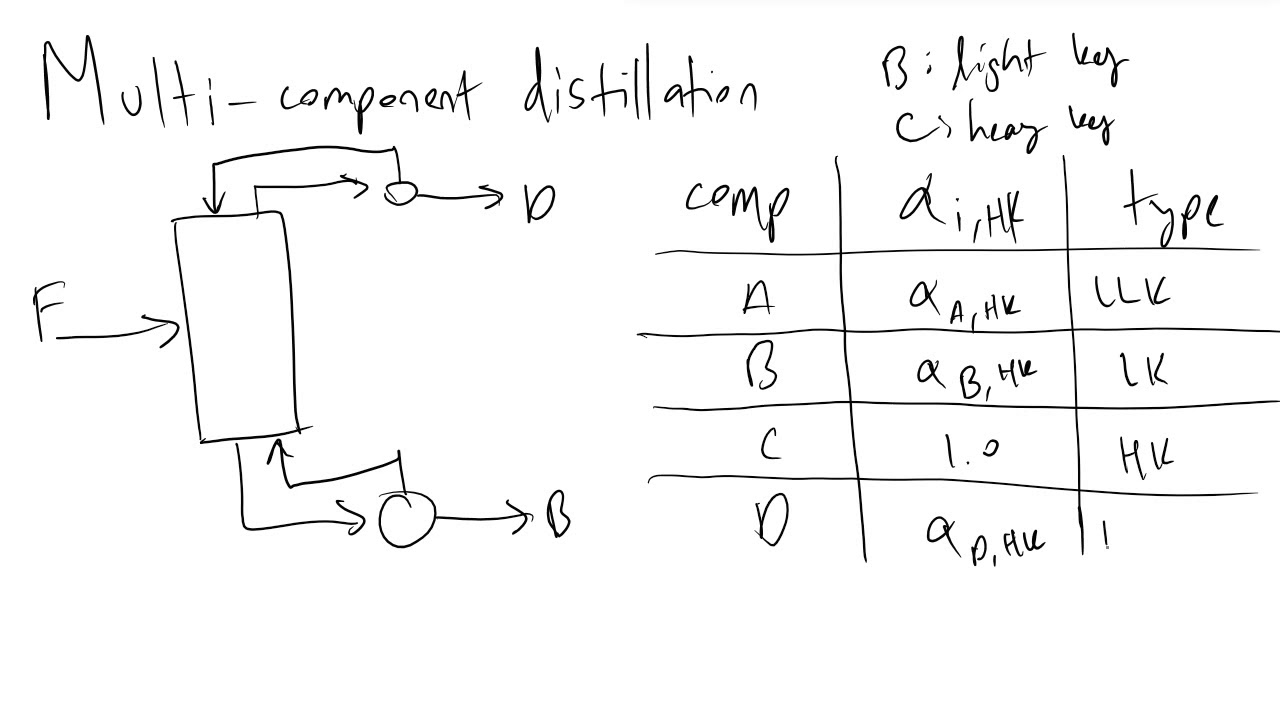 Multi-component distillation
B: light key
C: heavy key
D
F
B
comp α i,HK type
A α A,HK LLK
B α B,HK LK
C 1.0 HK
D α D,HK